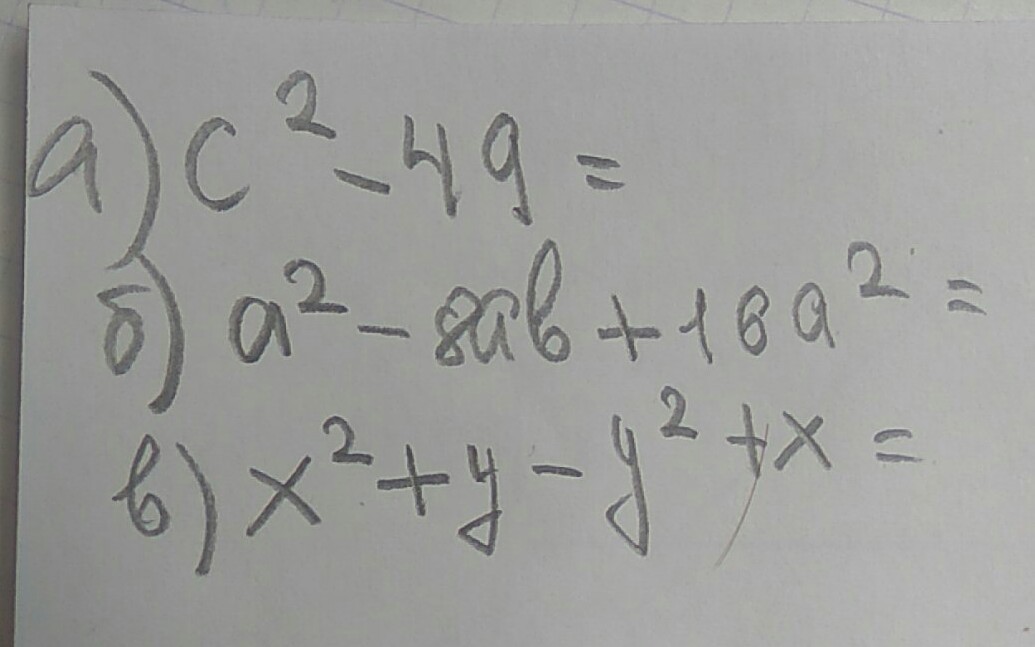 а) c² - 49 =
б) a² - 8ab + 16a² =
в) x² + y - y² + x =